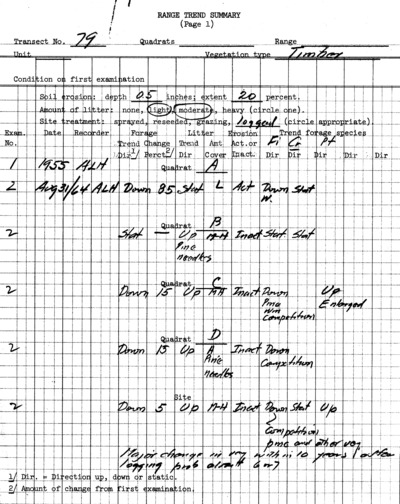 RANGE TREND SUMMARY
(Page 1)
Transect No. 79 Quadrats Range
Unit Vegetation type Timber
Condition on first examination
Soil erosion: depth 0.5 inches; extent 20 percent.
Amount of litter: none, light, moderate, heavy (circle one).
Site treatment: sprayed, reseeded, grazing, logged (circle appropriate).
Exam. Date Recorder Forage Litter Erosion Trend forage species
No. Trend Change Trend Amt Act.or Fi Cr Pt
Dir 1/ Perct 2/ Dir Cover Inact. Dir Dir Dir Dir Dir
1 1955 ALH Quadrat A
2 Aug 31/64 ALH Down 85 Stat L Act Down Stat
Quadrat B
2 Stat — Up M-H Inact Stat Stat
Pine
needles
Quadrat C
2 Down 15 Up M-H Inact Down Up
Pine Enlarged
competition
Quadrat D
2 Down 15 Up Inact Down
Pine Competition
needles
Site
2 Down 5 Up M-H Inact Down Stat Up
Competition
pine and other veg
Major change in veg within 10 years after
logging prob
1/ Dir. = Direction up, down or static.
2/ Amount of change from first examination.